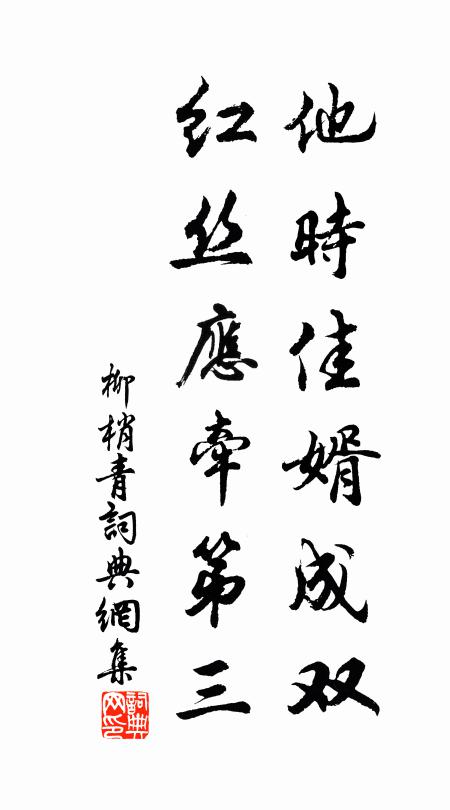 他時佳婿成双
红丝應牽第三
柳梢青詞典網集
詞典网印